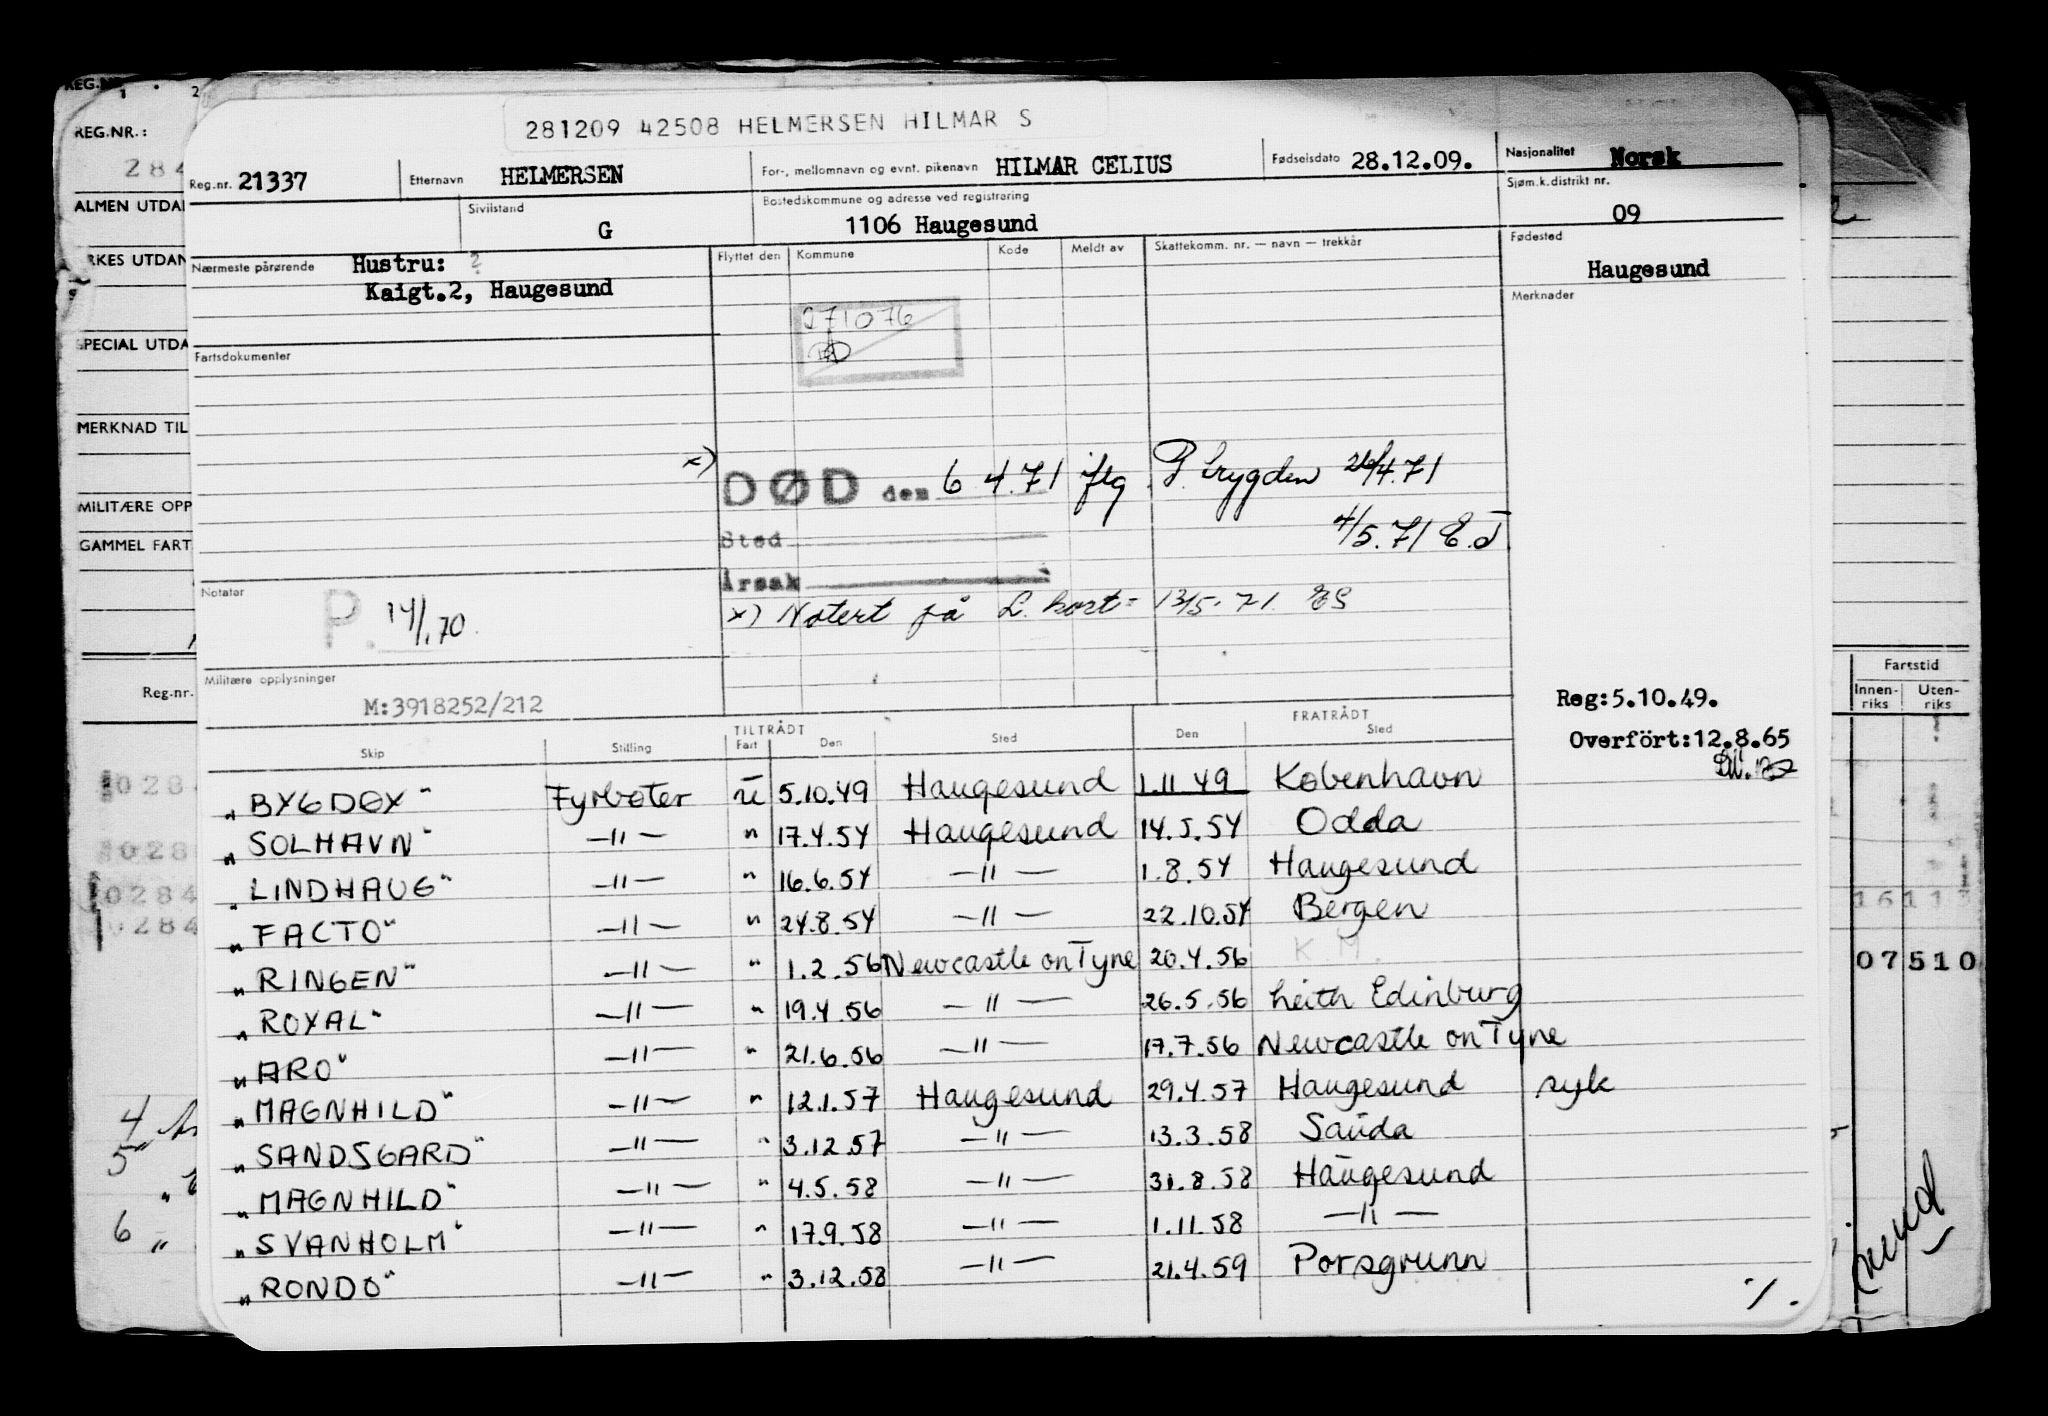 281209 42508 HELMERSEN HILMAR S
Reg.nr. 21337 Etternavn HELMERSEN For-, mellomnavn og evnt. pikenavn HILMAR CELIUS Fødselsdato 28.12.09. Nasjonalitet Norsk
Sivilstand G Bostedskommune og adresse ved registrering 1106 Haugesund Sjøm.k.distrikt nr. 09
Nærmeste pårørende Hustru: ? Flyttet den Kommune Kode Meldt av Skattekomm. nr. — navn — trekkår Fødested Haugesund
Kaigt.2, Haugesund
Merknader
271076
Fartsdokumenter
x) DØD den 6 4.71 jfg. P.trygden 26/4.71
4/5.71 E.J
Sted
Årsak
x) Notert på L. kort = 13/5.71. ES
Notater P. 14/1.70.
Militære opplysninger M:3918252/212
Reg:5.10.49.
Overfört:12.8.65
TILTRÅDT FRATRÅDT
Skip Stilling Fart Den Sted Den Sted
"BYGDØY" Fyrbøter u 5.10.49 Haugesund 1.11 49 København
"SOLHAVN" —"— " 17.4.54 Haugesund 14.5.54 Odda
"LINDHAUG" —"— " 16.6.54 —"— 1.8.54 Haugesund
"FACTO" —"— " 24.8.54 —"— 22.10.54 Bergen
"RINGEN" —"— " 1.2.56 Newcastle on Tyne 20.4.56 K.M.
"ROYAL" —"— " 19.4.56 —"— 26.5.56 Leith Edinburg
"ARO" —"— " 21.6.56 —"— 17.7.56 Newcastle on Tyne
"MAGNHILD" —"— " 12.1.57 Haugesund 29.4.57 Haugesund syk
"SANDSGARD" —"— " 3.12.57 —"— 13.3.58 Sauda
"MAGNHILD" —"— " 4.5.58 —"— 31.8.58 Haugesund
"SVANHOLM" —"— " 17.9.58 —"— 1.11.58 —"—
"RONDO" —"— " 3.12.58 —"— 21.4.59 Porsgrunn
./.
REG.NR.:
284
ALMEN UTDA
RKES UTDAN
SPECIAL UTDA
MERKNAD TIL
MILITÆRE OPP
GAMMEL FART
Reg.nr.
0284
028
0284
0284
4
5
6
Fartstid
Innen-riks Uten-riks
1611
07510